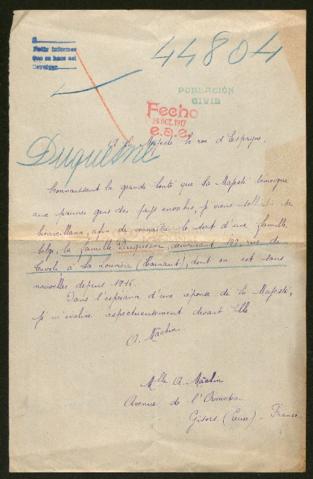 44804
Pedir informes
Que se hace con
POBLACIÓN
CIVIL
Fecho
A Sa Majesté le roi d'Espagne,
Duquesne
Connaissant la grande bonté que Sa Majesté témoigne
aux pauvres gens des pays envahis, je viens solliciter Sa
bienveillance, afin de connaître le sort d'une famille
belge, la famille Duquesne, demeurant rue de
à La Louvière (Hainaut), dont on est sans
nouvelles depuis 1916.
Dans l'espérance d'une réponse de Sa Majesté,
je m'incline respectueusement devant Elle
A. Machin
Melle A. Machin
Avenue de l'
Gisors (Eure) - France